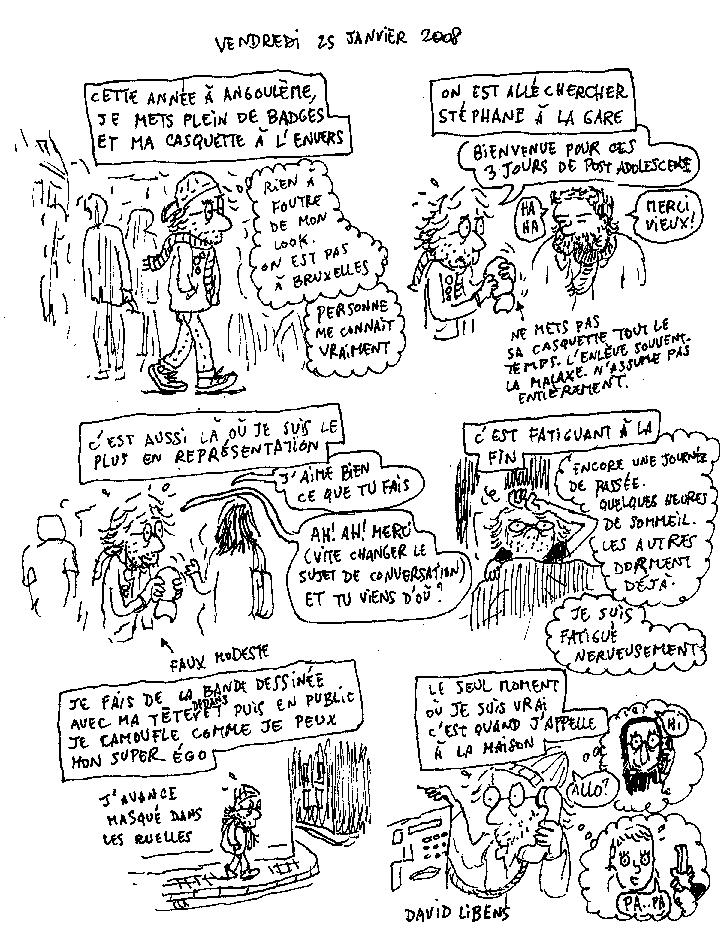 VENDREDI 25 JANVIER 2008
CETTE ANNÉE À ANGOULÊME,
JE METS PLEIN DE BADGES
ET MA CASQUETTE À L'ENVERS
RIEN À
FOUTRE
DE MON
LOOK.
ON EST PAS
À BRUXELLES
PERSONNE
ME CONNAIT
VRAIMENT
ON EST ALLÉ CHERCHER
STÉPHANE À LA GARE
BIENVENUE POUR CES
3 JOURS DE POST ADOLESCENCE
HA
HA
MERCI
VIEUX!
NE METS PAS
SA CASQUETTE TOUT LE
TEMPS. L'ENLÈVE SOUVENT.
LA MALAXE. N'ASSUME PAS
ENTIÈREMENT.
C'EST AUSSI LÀ OÙ JE SUIS LE
PLUS EN REPRÉSENTATION
J'AIME BIEN
CE QUE TU FAIS
AH! AH! MERCI
(VITE CHANGER LE
SUJET DE CONVERSATION)
ET TU VIENS D'OÙ?
FAUX MODESTE
C'EST FATIGUANT À LA
FIN
ENCORE UNE JOURNÉE
DE PASSÉE.
QUELQUES HEURES
DE SOMMEIL.
LES AUTRES
DORMENT
DÉJÀ.
JE SUIS
FATIGUÉ
NERVEUSEMENT
JE FAIS DE LA BANDE DESSINÉE
AVEC MA TÊTE DEDANS ET PUIS EN PUBLIC
JE CAMOUFLE COMME JE PEUX
MON SUPER ÉGO
J'AVANCE
MASQUÉ DANS
LES RUELLES
LE SEUL MOMENT
OÙ JE SUIS VRAI
C'EST QUAND J'APPELLE
À LA MAISON
ALLO?
HI
PA..PA
DAVID LIBENS